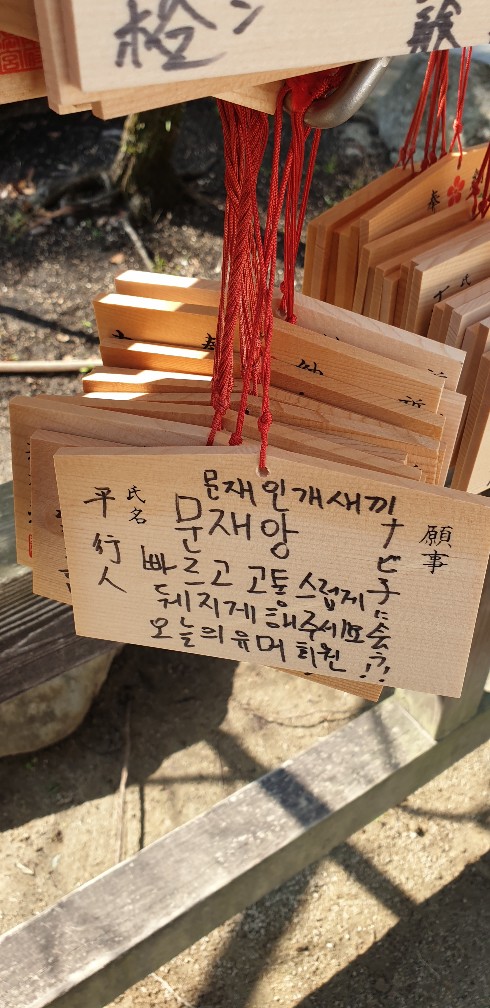 奉
願事
ナビ子に会う!?
문재인개새끼
문재앙
빠르고 고통스럽게
뒈지게 해주세요
오늘의유머 회원
氏名
平行人